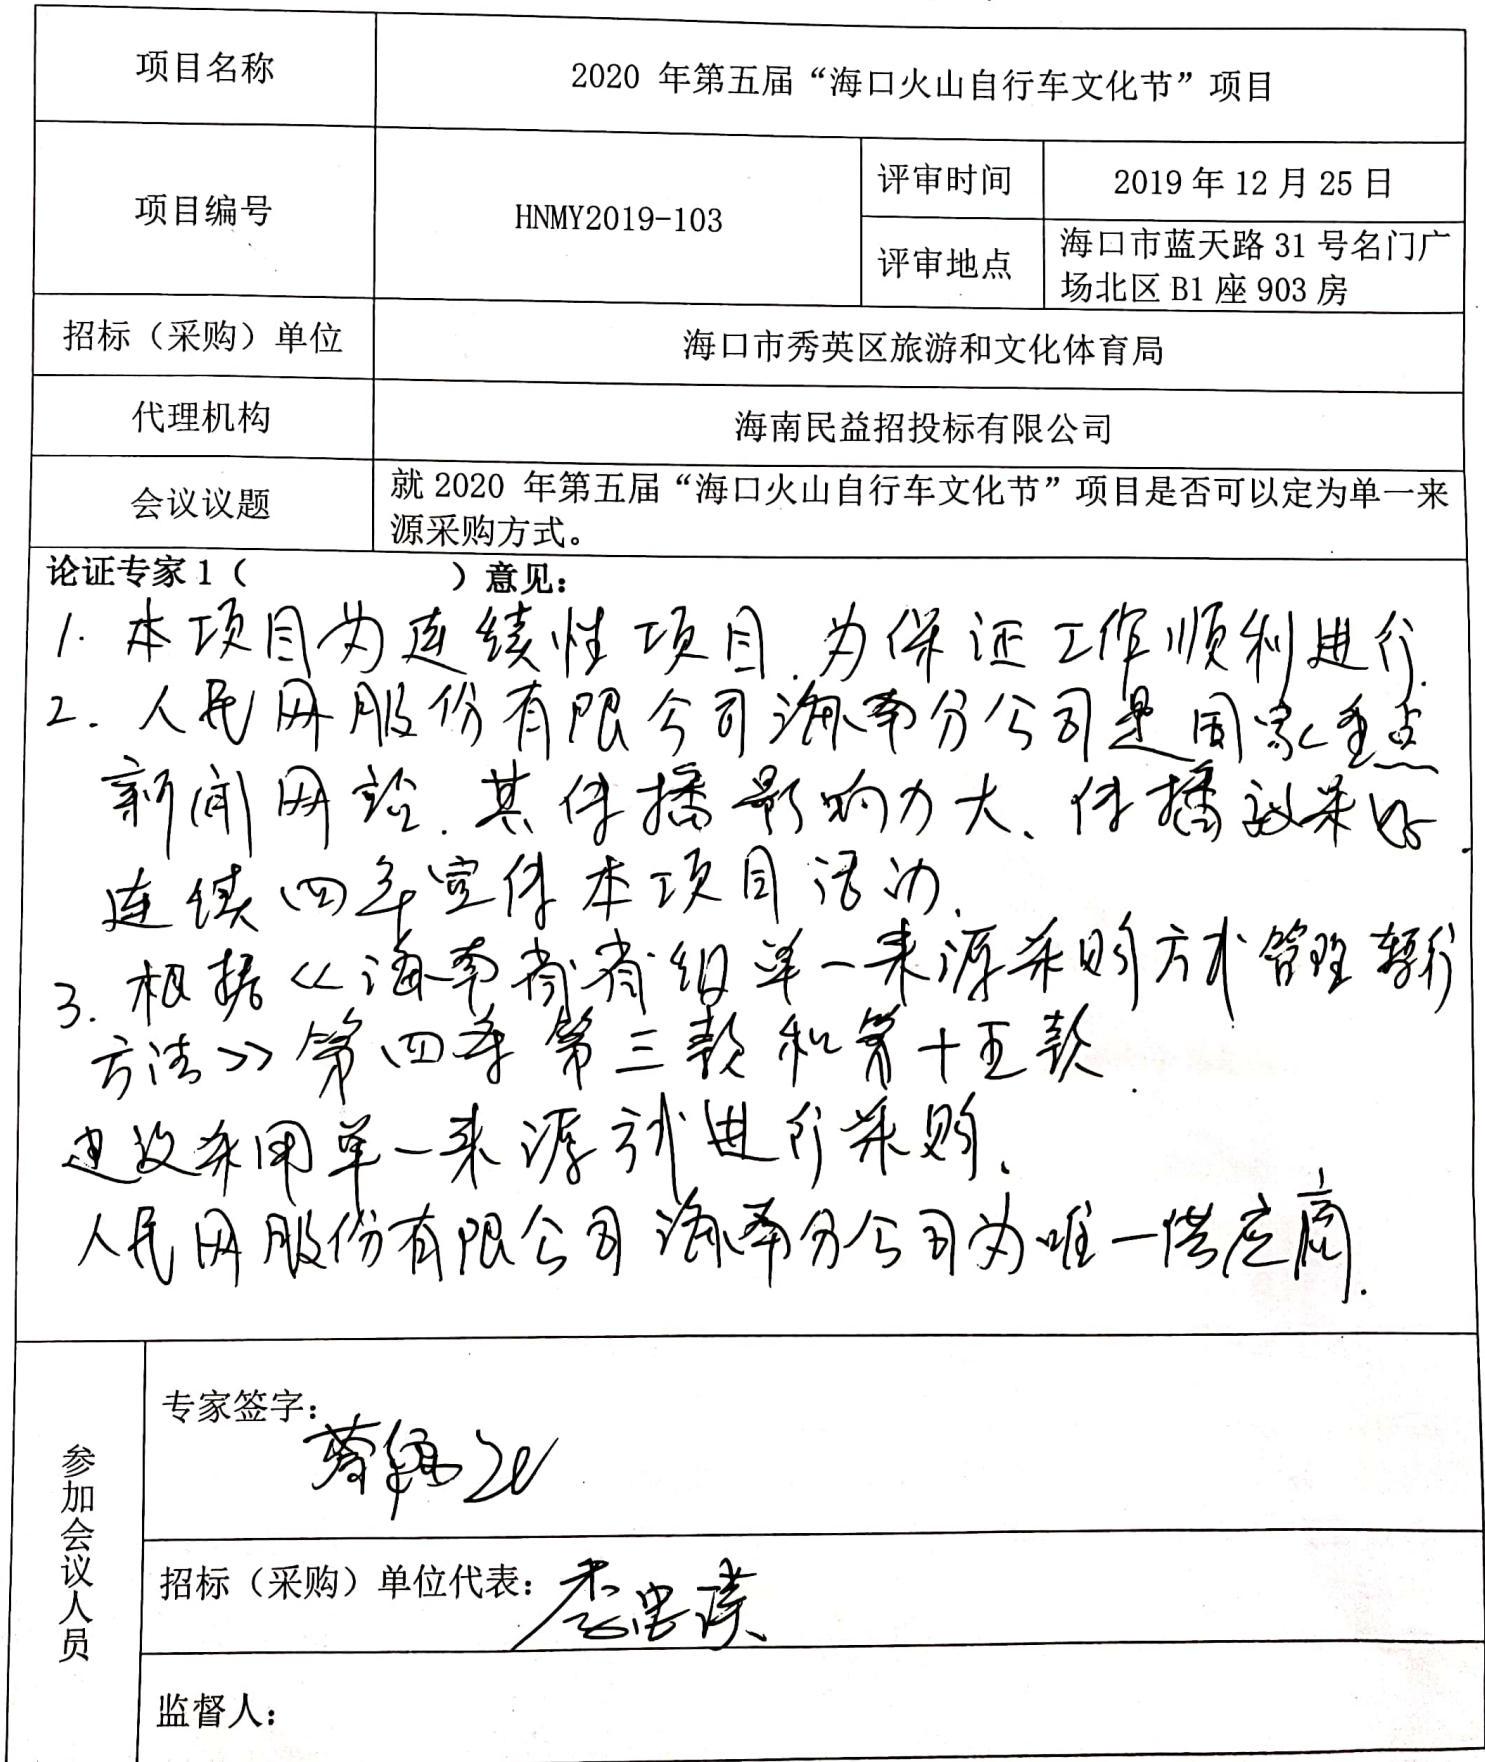 项目名称
2020 年第五届“海口火山自行车文化节”项目
项目编号
HNMY2019-103
评审时间
2019 年 12 月 25 日
评审地点
海口市蓝天路 31 号名门广
场北区 B1 座 903 房
招标（采购）单位
海口市秀英区旅游和文化体育局
代理机构
海南民益招投标有限公司
会议议题
就 2020 年第五届“海口火山自行车文化节”项目是否可以定为单一来
源采购方式。
论证专家 1（ ）意见：
1. 本项目为连续性项目.为保证工作顺利进行.
2. 人民网股份有限公司海南分公司是国家重点
新闻网站.其传播影响力大、传播效果好.
连续四年宣传本项目活动.
3. 根据《海南省省级单一来源采购方式管理暂行
方法》第四条第三款和第十五款.
建议采用单一来源方式进行采购.
人民网股份有限公司海南分公司为唯一供应商.
参加会议人员
专家签字：
招标（采购）单位代表：
监督人：